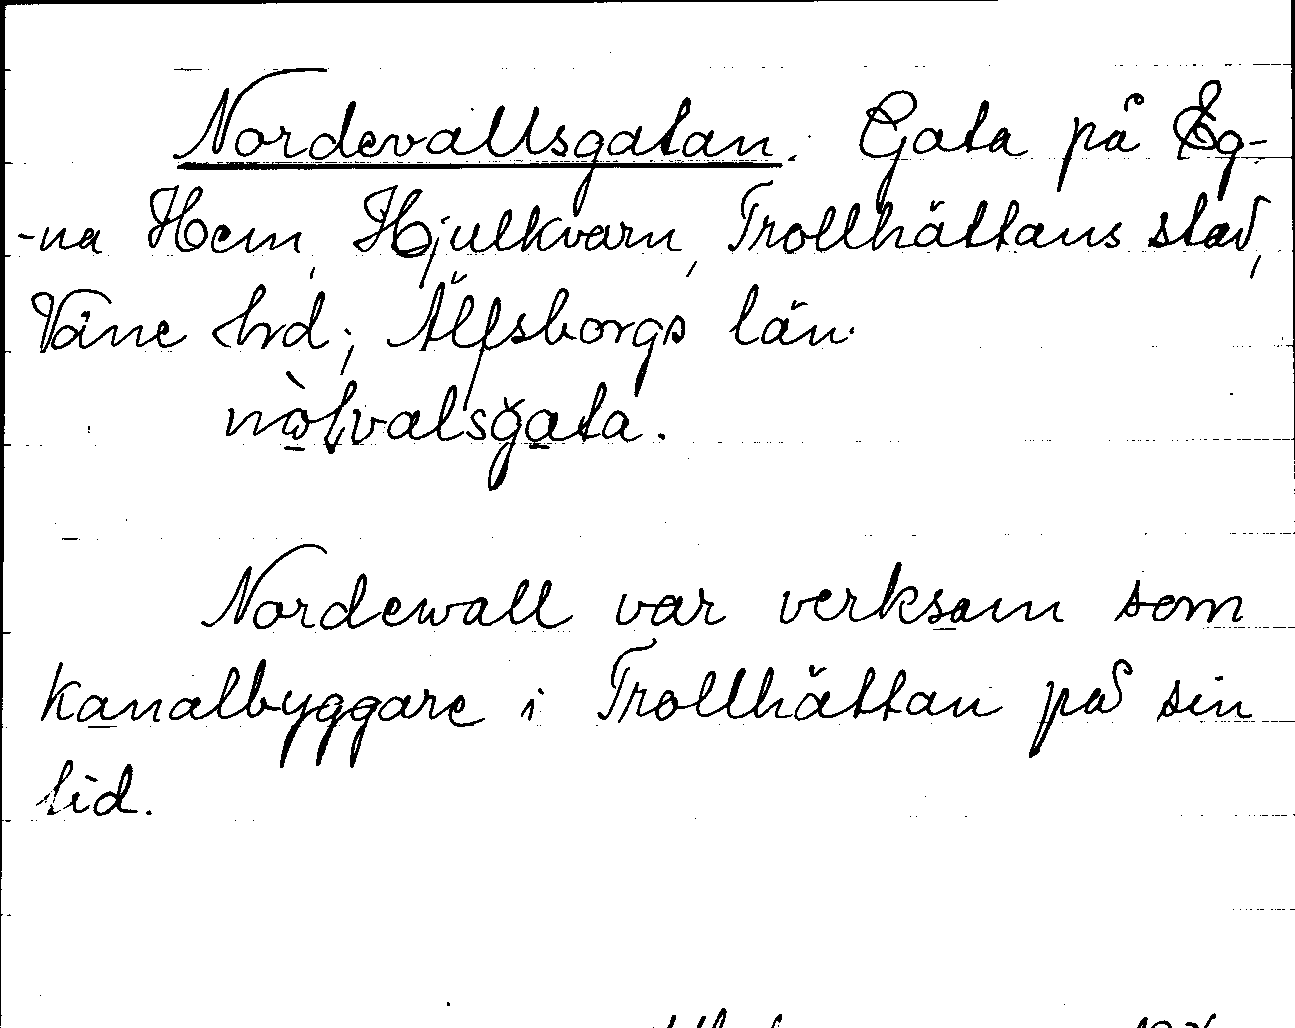 Nordevallsgatan. Gata på Eg-
-na Hem, Hjulkvarn, Trollhättans stad,
Väne hd; Älfsborgs län.
Nordewall var verksam som
kanalbyggare i Trollhättan på sin
tid.